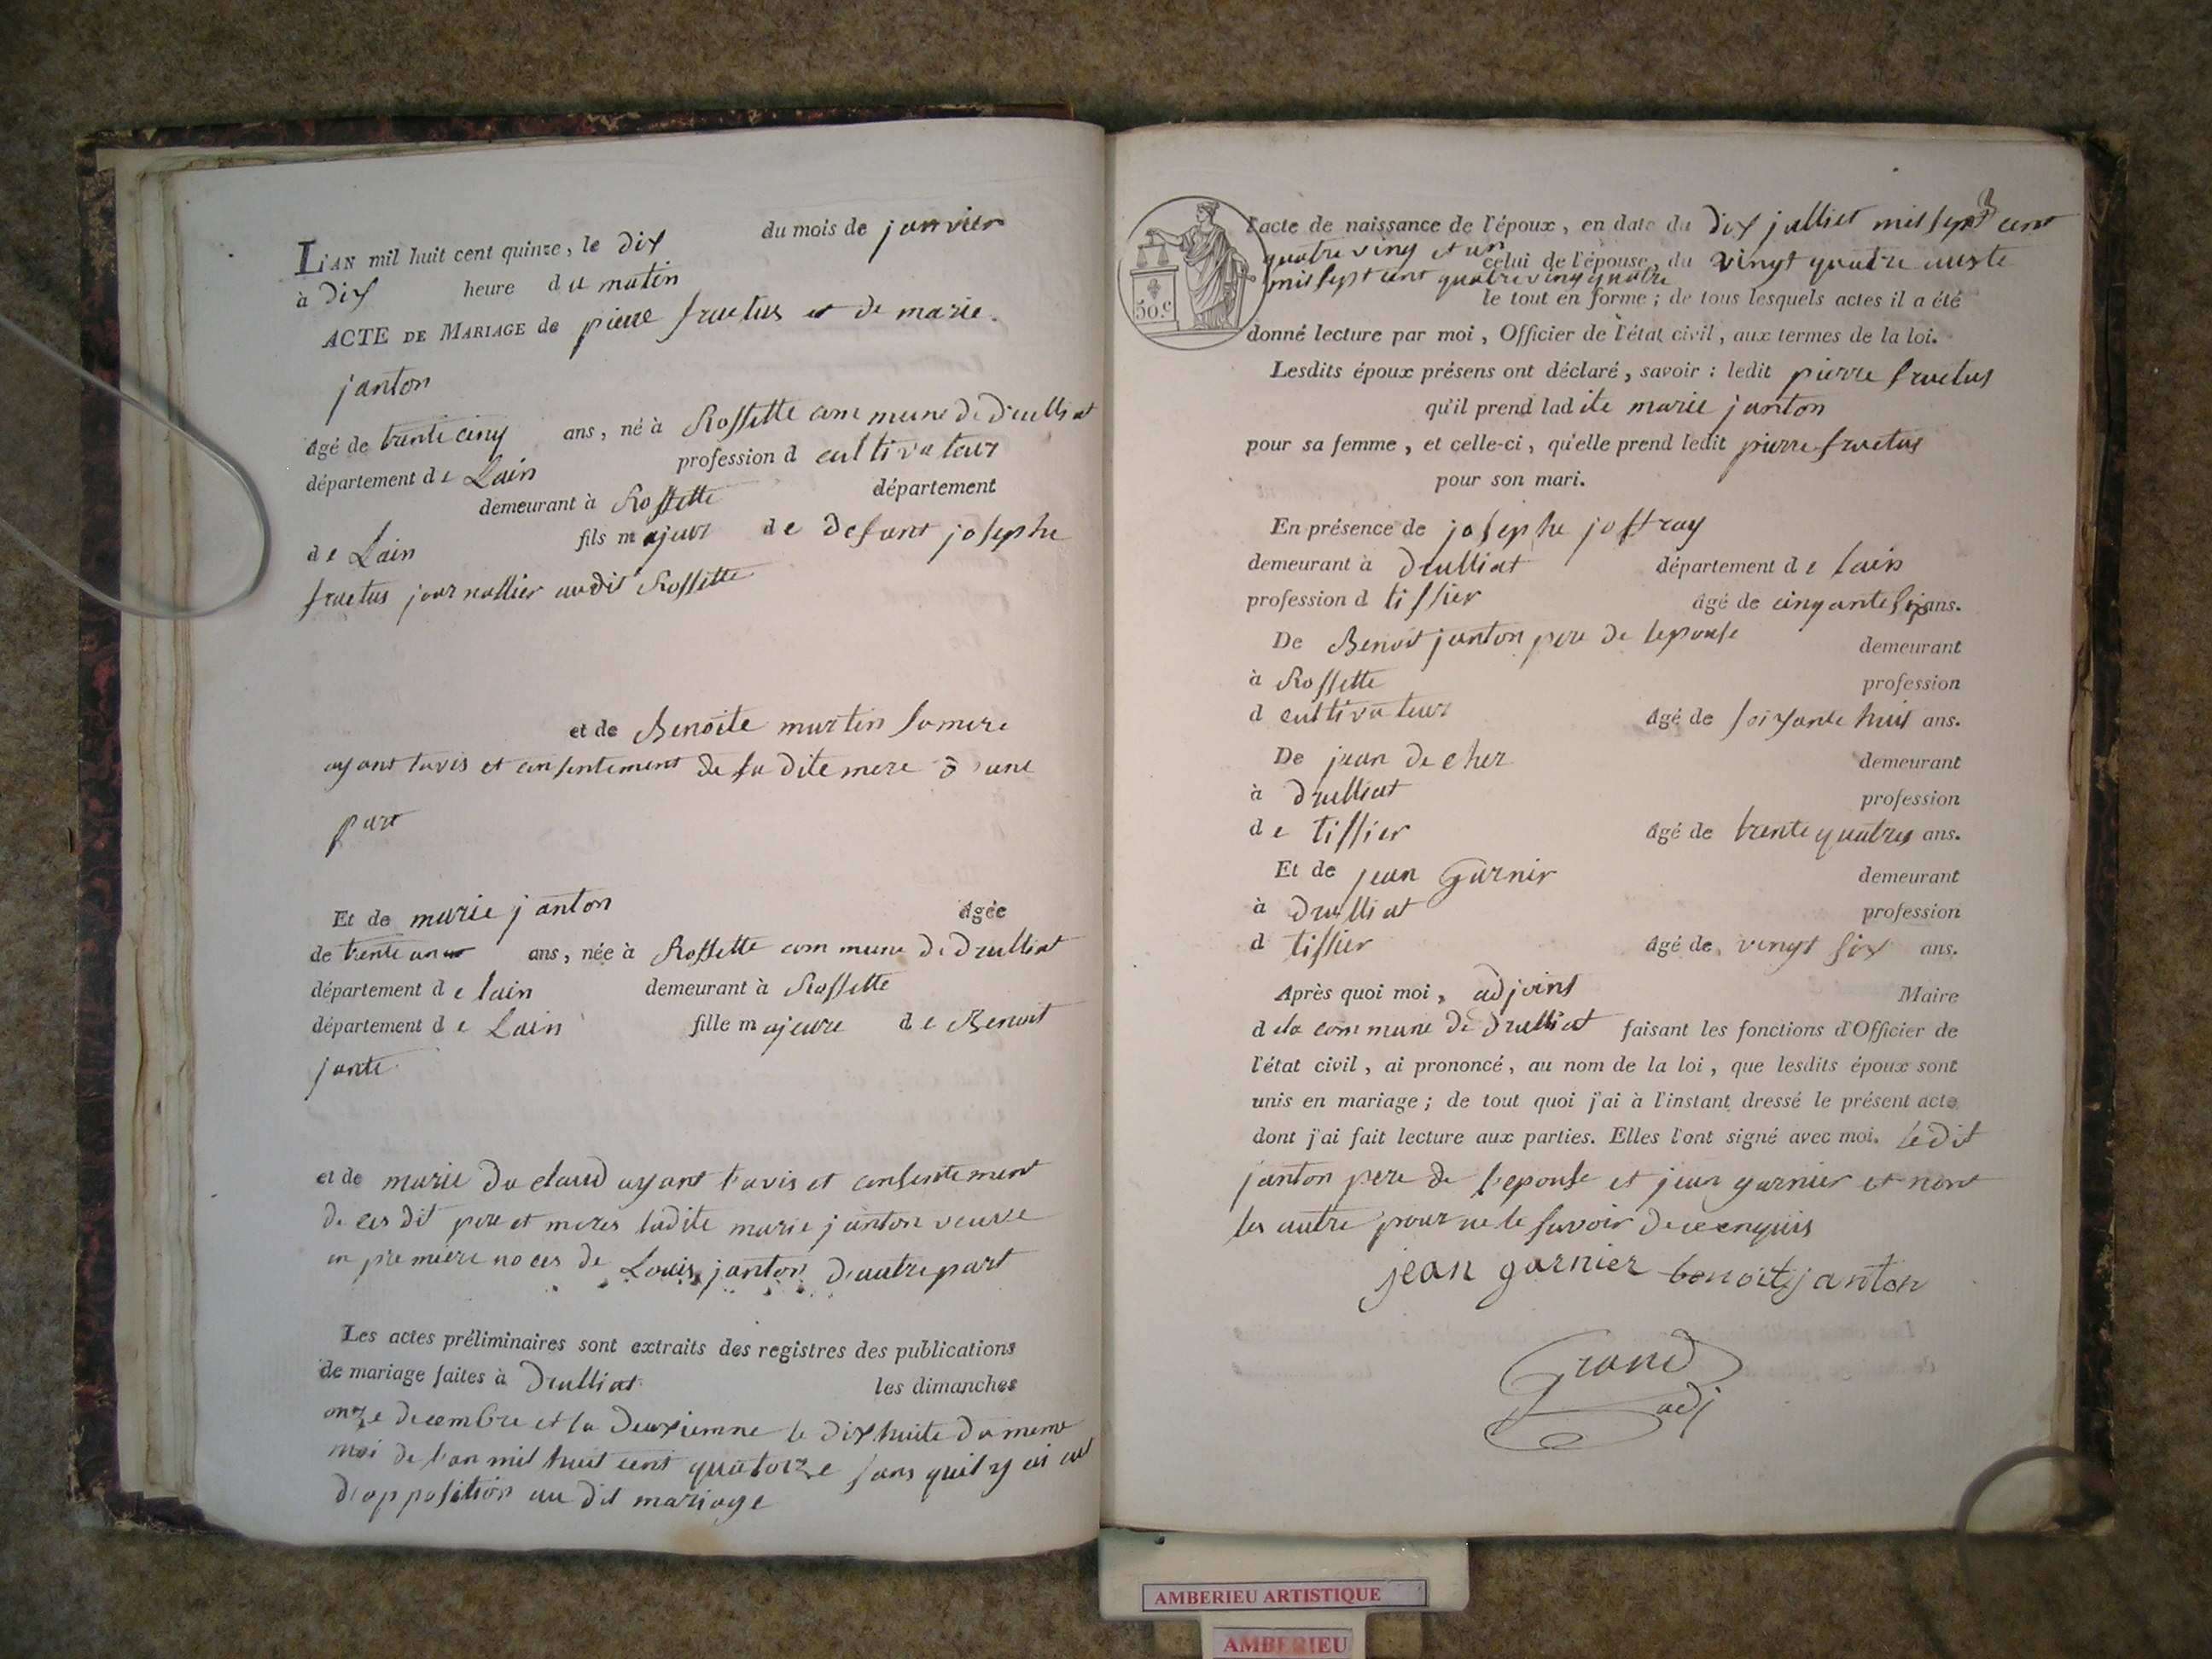 L'AN mil huit cent quinze, le dix du mois de janvier
à dix heure du matin
ACTE DE MARIAGE de pierre fructus et de marie
janton
âgé de trente cinq ans, né à Rossette commune de drulliat
département de Lain profession d cultivateur
demeurant à Rossette département
de Lain fils majeur de defunt josephe
fructus journallier audit Rossette
et de Benoite martin sa mere
ayant lavis et consentement de sa dite mere d'une
part
Et de marie janton âgée
de trente ans, née à Rossette commune de drulliat
département de lain demeurant à Rossette
département de Lain fille majeure de Benoit
jante
et de marie du claud ayant l'avis et consentement
de ces dit pere et meres ladite marie janton veuve
en premiere noces de Louis janton d'autre part
Les actes préliminaires sont extraits des registres des publications
de mariage faites à Drulliat les dimanches
onze decembre et la deuxiemne le dix huite du meme
moi de l'an mil huit cent quatorze sans quil y ai eu
d'opposition au dit mariage
l'acte de naissance de l'époux, en date du dix julliet mil sept cent
quatre ving et un celui de l'épouse, du vingt quatre auste
mil sept cent quatre ving quatre
le tout en forme ; de tous lesquels actes il a été
donné lecture par moi, Officier de l'état civil, aux termes de la loi.
50.c
Lesdits époux présens ont déclaré, savoir : ledit pierre fructus
qu'il prend ladite marie janton
pour sa femme, et celle-ci, qu'elle prend ledit pierre fructus
pour son mari.
En présence de josephe joffray
demeurant à drulliat département de lain
profession d tissier âgé de cinqante ans.
De Benoit janton pere de lepouse demeurant
à Rossette profession
d cultivateur âgé de soixante huit ans.
De jean decher demeurant
à drulliat profession
de tissier âgé de trente quatres ans.
Et de jean Garnir demeurant
à drulliat profession
d tissier âgé de vingt six ans.
Après quoi moi, adjoint Maire
dela commune de drulliat faisant les fonctions d'Officier de
l'état civil, ai prononcé, au nom de la loi, que lesdits époux sont
unis en mariage ; de tout quoi j'ai à l'instant dressé le présent acte
dont j'ai fait lecture aux parties. Elles l'ont signé avec moi. ledit
janton pere de l'epouse et jean garnier et nont
les autre pour ne le savoir de ce enquis
jean garnier benoit janton
Grand
adj
AMBERIEU ARTISTIQUE
AMBERIEU